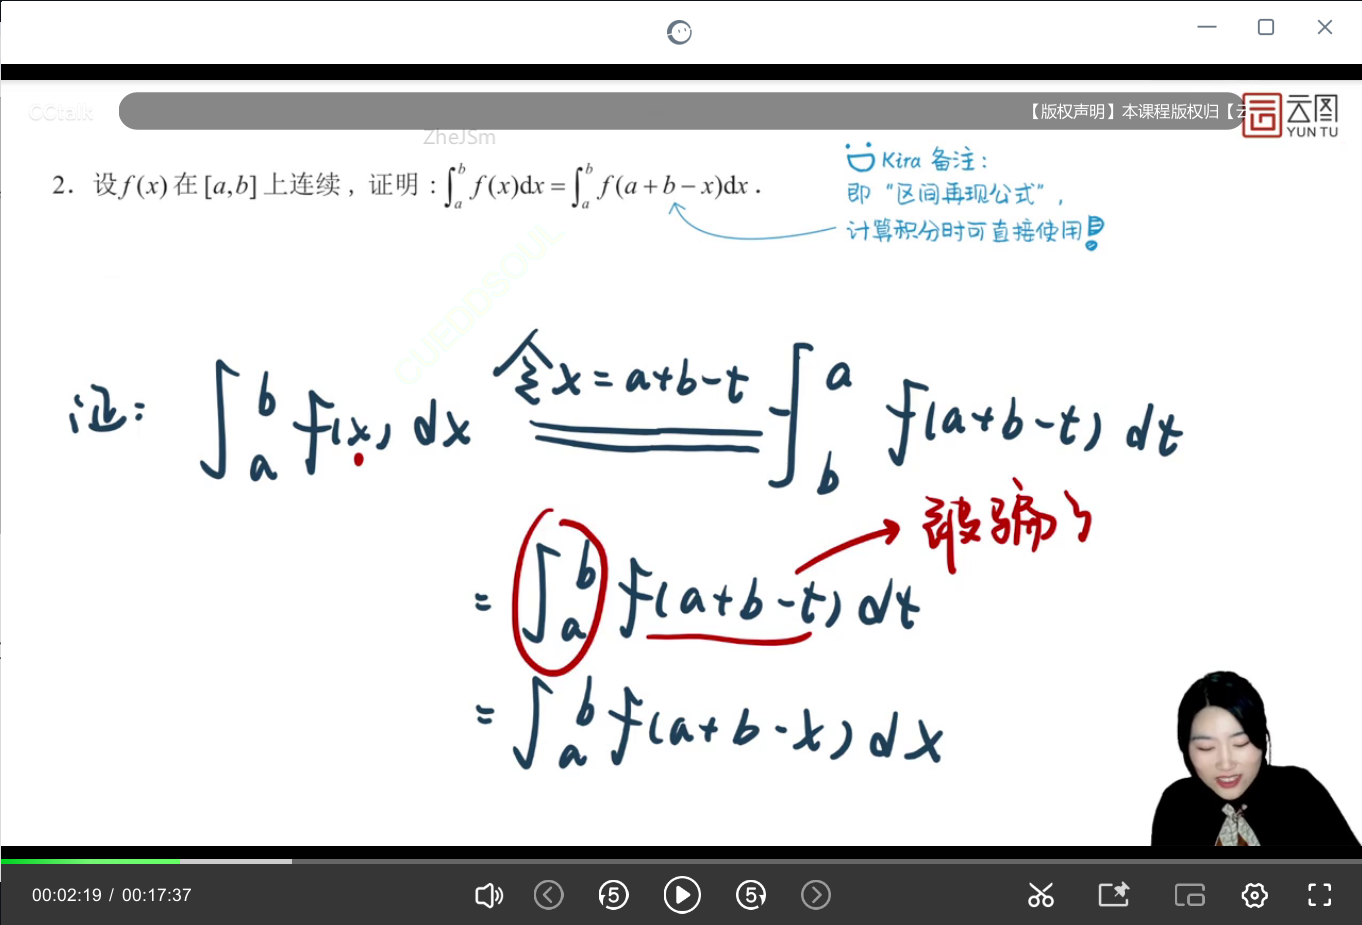 CCtalk
【版权声明】本课程版权归【云
云图
YUN TU
ZheJSm
2. 设f(x)在[a,b]上连续，证明：∫_a^b f(x)dx=∫_a^b f(a+b−x)dx.
Kira 备注：
即“区间再现公式”，
计算积分时可直接使用！
CUEDDSOUL
证： ∫_a^b f(x) dx 令x=a+b−t -∫_b^a f(a+b−t) dt
= ∫_a^b f(a+b−t) dt → 被骗了
= ∫_a^b f(a+b−x) dx
00:02:19 / 00:17:37
5
5